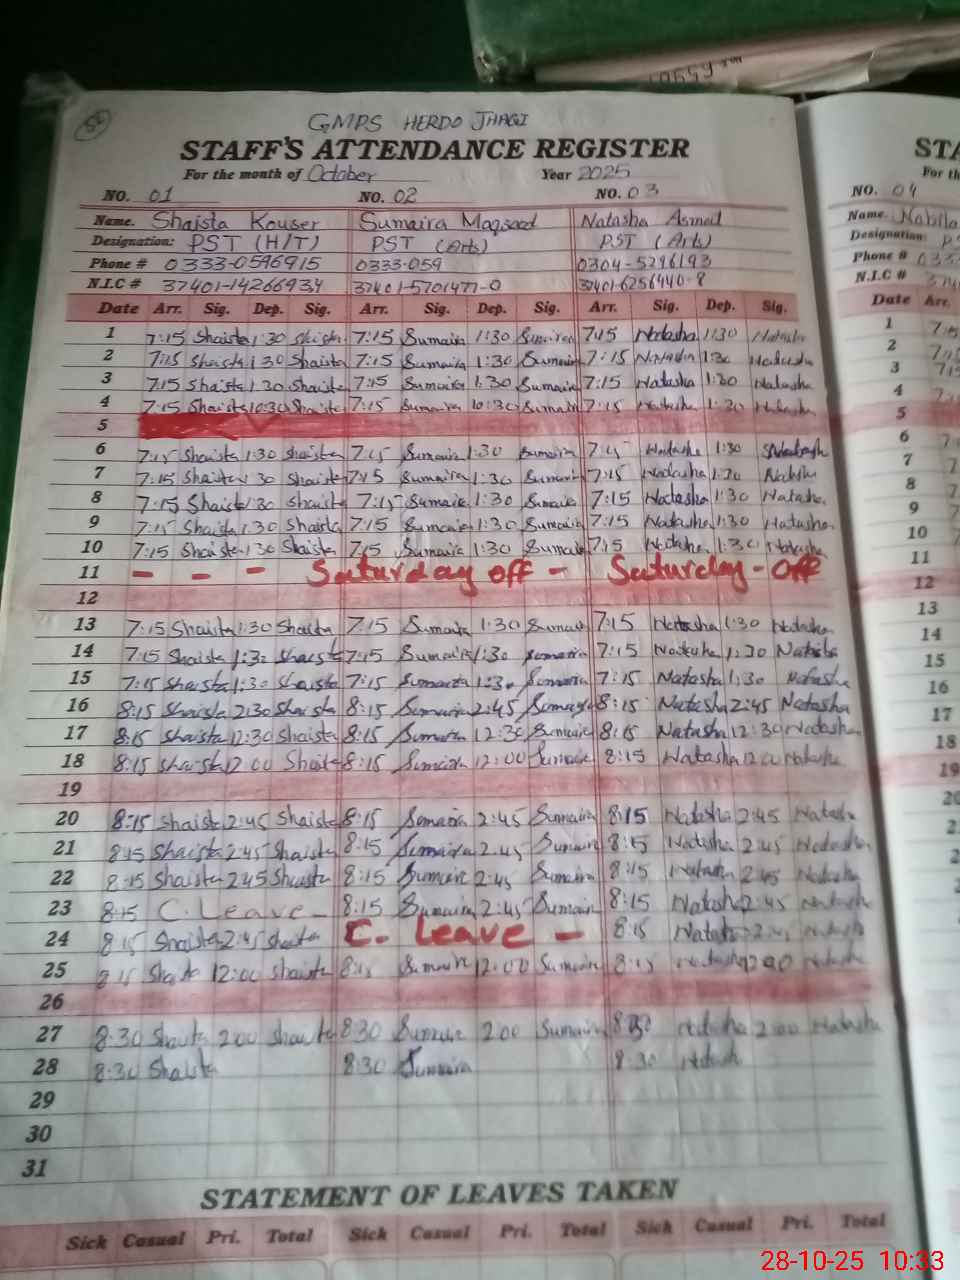 52
GMPS HERDO JHAGI
STAFF'S ATTENDANCE REGISTER
For the month of October Year 2025
NO. 01 NO. 02 NO. 03
Name. Shaista Kouser Sumaira Maqsood Natasha Asmad
Designation: PST (H/T) PST (Arts) PST (Arts)
Phone # 0333-0596915 0333-059 0304-5296193
N.I.C # 37401-14266934 37401-5701477-0 37401-6256440-8
Date Arr. Sig. Dep. Sig. Arr. Sig. Dep. Sig. Arr. Sig. Dep. Sig.
1 7:15 Shaista 1:30 Shaista 7:15 Sumaira 1:30 Sumaira 7:15 Natasha 1:30 Natasha
2 7:15 Shaista 1:30 Shaista 7:15 Sumaira 1:30 Sumaira 7:15 Natasha 1:30 Natasha
3 7:15 Shaista 1:30 Shaista 7:15 Sumaira 1:30 Sumaira 7:15 Natasha 1:30 Natasha
4 7:15 Shaista 10:30 Shaista 7:15 Sumaira 10:30 Sumaira 7:15 Natasha 1:30 Natasha
5
6 7:15 Shaista 1:30 Shaista 7:15 Sumaira 1:30 Sumaira 7:15 Natasha 1:30
7 7:15 Shaista 1:30 Shaista 7:15 Sumaira 1:30 Sumaira 7:15 Natasha 1:30 Natasha
8 7:15 Shaista 1:30 Shaista 7:15 Sumaira 1:30 Sumaira 7:15 Natasha 1:30 Natasha
9 7:15 Shaista 1:30 Shaista 7:15 Sumaira 1:30 Sumaira 7:15 Natasha 1:30 Natasha
10 7:15 Shaista 1:30 Shaista 7:15 Sumaira 1:30 Sumaira 7:15 Natasha 1:30 Natasha
11 - - - Saturday off - Saturday - Off
12
13 7:15 Shaista 1:30 Shaista 7:15 Sumaira 1:30 Sumaira 7:15 Natasha 1:30 Natasha
14 7:15 Shaista 1:30 Shaista 7:15 Sumaira 1:30 Sumaira 7:15 Natasha 1:30 Natasha
15 7:15 Shaista 1:30 Shaista 7:15 Sumaira 1:30 Sumaira 7:15 Natasha 1:30 Natasha
16 8:15 Shaista 2:30 Shaista 8:15 Sumaira 2:45 Sumaira 8:15 Natasha 2:45 Natasha
17 8:15 Shaista 12:30 Shaista 8:15 Sumaira 12:30 Sumaira 8:15 Natasha 12:30 Natasha
18 8:15 Shaista 12:00 Shaista 8:15 Sumaira 12:00 Sumaira 8:15 Natasha 12:00 Natasha
19
20 8:15 Shaista 2:45 Shaista 8:15 Sumaira 2:45 Sumaira 8:15 Natasha 2:45 Natasha
21 8:15 Shaista 2:45 Shaista 8:15 Sumaira 2:45 Sumaira 8:15 Natasha 2:45 Natasha
22 8:15 Shaista 2:45 Shaista 8:15 Sumaira 2:45 Sumaira 8:15 Natasha 2:45 Natasha
23 8:15 C. Leave - 8:15 Sumaira 2:45 Sumaira 8:15 Natasha 2:45 Natasha
24 8:15 Shaista 2:45 Shaista C. Leave - 8:15 Natasha 2:45 Natasha
25 8:15 Shaista 12:00 Shaista 8:15 Sumaira 12:00 Sumaira 8:15 Natasha 12:00 Natasha
26
27 8:30 Shaista 2:00 Shaista 8:30 Sumaira 2:00 Sumaira 8:30 Natasha 2:00 Natasha
28 8:30 Shaista 8:30 Sumaira 8:30 Natash
29
30
31
STATEMENT OF LEAVES TAKEN
Sick Casual Pri. Total Sick Casual Pri. Total Sick Casual Pri. Total
STA
For th
NO. 04
Name. Nabila
Designation:
Phone #
N.I.C #
Date Arr.
1
2
3
4
5
6
7
8
9
10
11
12
13
14
15
16
17
18
19
20
28-10-25 10:33